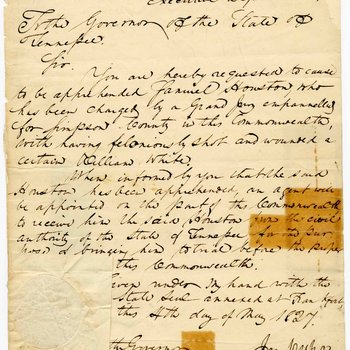 To the Governor of the State of
Tennessee.
Sir.
You are hereby requested to cause
to be apprehended Samuel Houston who
has been charged by a Grand Jury empannelled
for Simpson County in this Commonwealth,
with having feloniously shot and wounded a
certain William White.
When informed by you that the said
Houston has been apprehended, an agent will
be appointed on the part of the Commonwealth
to receive him the said Houston from the civil
authority of the State of Tennessee for the pur
pose of bringing him to trial before the proper
this Commonwealth.
Given under my hand with the
State Seal annexed at Frankfort,
this 4th day of May 1827.
the Governor